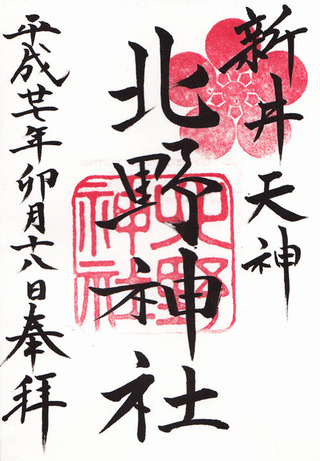 新井天神
北野神社
平成廿七年卯月十八日奉拝
北野
神社